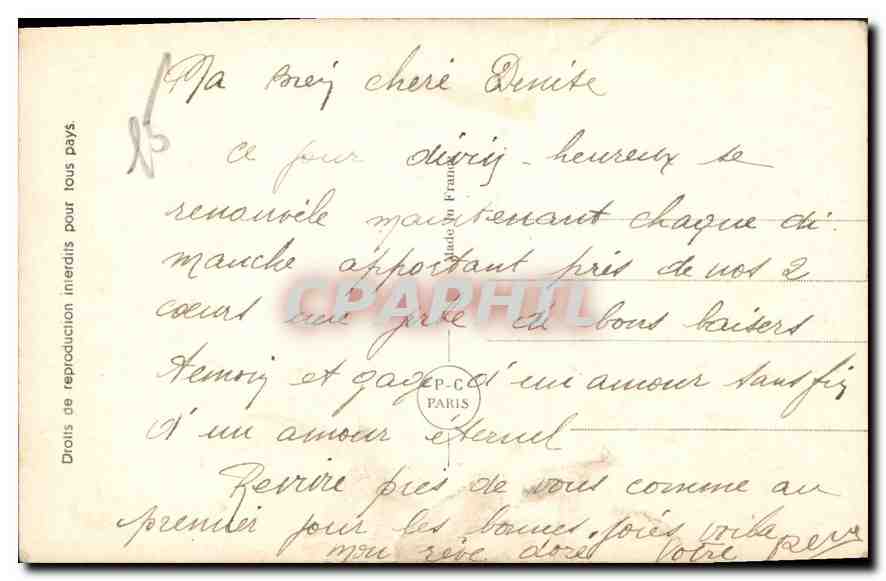 Ma bien cheré Denise
ce jour divin-heureux se
renouvéle maintenant chaque di-
manche apportant près de nos 2
cœurs une de bons baisers
temoin et gage d'un amour sans fin
d'un amour éternel
Revivre près de vous comme au
premier jour les bonnes joiés voila
mon rêve doré. Votre
Droits de reproduction interdits pour tous pays.
Made in France
P-C
PARIS
CPAPHIL